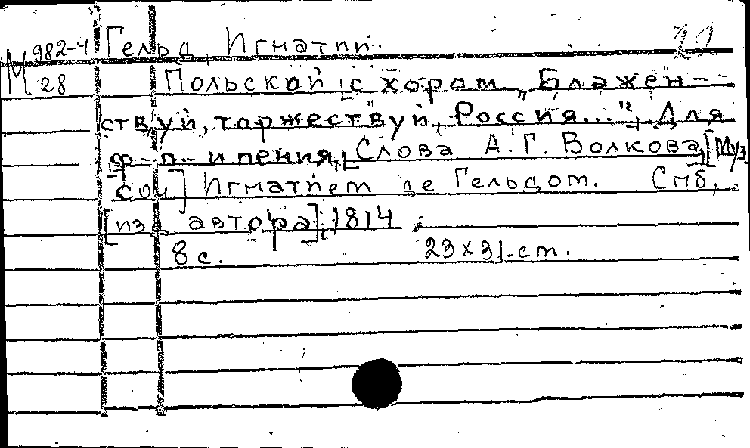 М 982-4 Гельд, Игнатий.
28 Польской [с хором „Блажен-
ствуй, торжествуй, Россия..."] Для
ф-п. и пения. Слова А. Г. Волкова, [Муз.
соч] Игнатием де Гельдом. Спб,
[изд. автора], 1814.
8 с. 23х31 ст.